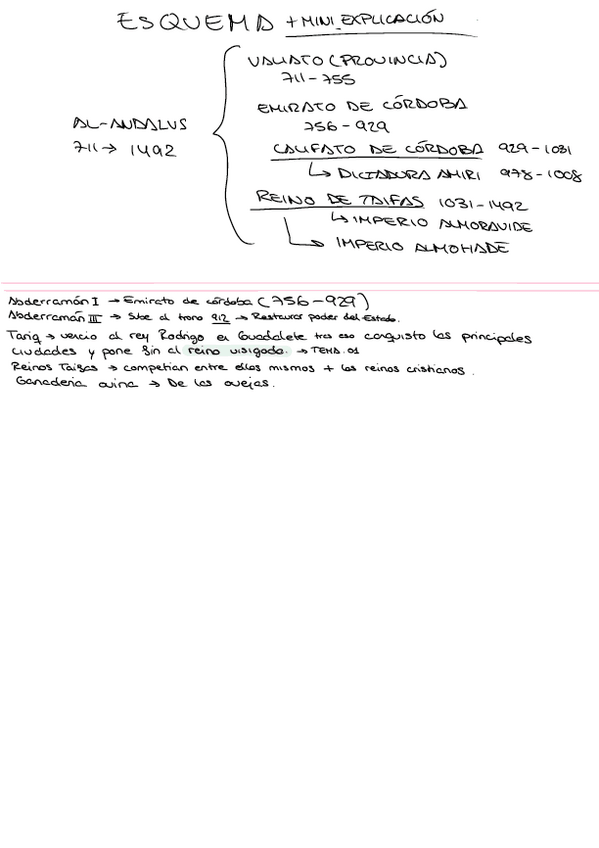 ESQUEMA + MINI EXPLICACIÓN
VALIATO (PROVINCIA)
711-755
EMIRATO DE CÓRDOBA
756-929
AL-ANDALUS
711 → 1492
CALIFATO DE CÓRDOBA 929-1031
↳ DICTADURA AMIRI 978-1008
REINO DE TAIFAS 1031-1492
↳ IMPERIO ALMORAVIDE
↳ IMPERIO ALMOHADE
Abderramón I → Emirato de córdoba (756-929)
Abderramán III → Sube al trono 912 → Restaurar poder del Estado.
Tariq → vencio al rey Rodrigo en Guadalete tras eso conquisto las principales
ciudades y pone fin al reino visigodo. → TEMA.01
Reinos Taifas → competian entre ellos mismos + los reinos cristianos.
Ganaderia ovina → De las ovejas.